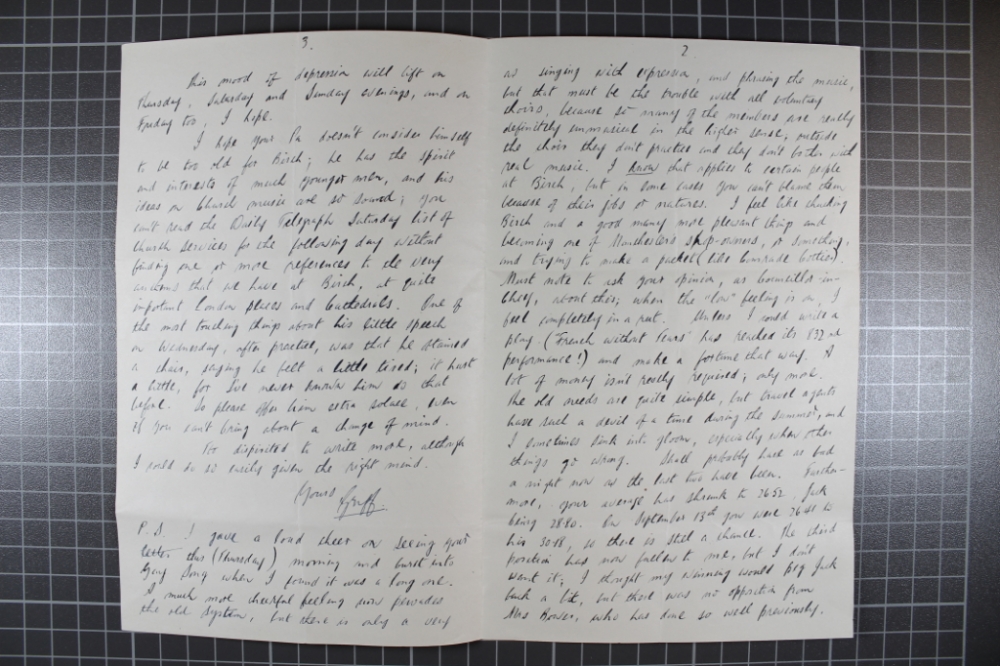 3.
This mood of depression will lift on
Thursday, Saturday and Sunday evenings, and on
Friday too, I hope.
I hope your Pa doesn't consider himself
to be too old for Birch; he has the spirit
and interests of much younger men, and his
ideas on Church music are so sound; you
can't read the Daily Telegraph Saturday list of
Church Services for the following day without
finding one or more references to the very
anthems that we have at Birch, at quite
important London places and Cathedrals. One of
the most touching things about his little speech
on Wednesday, after practice, was that he obtained
a chair, saying he felt a little tired; it hurt
a little, for I've never known him do that
before. So please offer him extra solace, even
if you can't bring about a change of mind.
Too dispirited to write more, although
I could do so easily given the right mind.
Yours Griff
P.S. I gave a loud cheer on seeing your
letter this (Thursday) morning and burst into
Song when I found it was a long one.
A much more cheerful feeling now pervades
the old system, but there is only a very
2
as singing with expression, and phrasing the music,
but that must be the trouble with all voluntary
choirs, because so many of the members are really
definitely unmusical in the higher sense; outside
the choir they don't practice and they don't bother with
real music. I know that applies to certain people
at Birch, but in some cases you can't blame them
because of their jobs or natures. I feel like chucking
Birch and a good many more pleasant things and
becoming one of Manchester's shop-owners, or something,
and trying to make a packet (like Comrade
Must note to ask your opinion, as Councillor-in-
Chief, about this; when the "low" feeling is on I
feel completely in a rut. Unless I could write a
play ('French without Tears' has reached its 832nd
performance!) and make a fortune that way. A
lot of money isn't really required; only more.
The old needs are quite simple, but travel agents
have such a devil of a time during the summer, and
I sometimes sink into gloom, especially when other
things go wrong. Shall probably have as bad
a night now as the last two have been. Further-
more, your average has shrunk to 2652, Jack
being 2880. On September 13th you were to
his 3018, so there is still a chance. The third
position has now fallen to me, but I don't
want it; I thought my winning would peg Jack
back a bit, but there was no opposition from
Mrs Bower, who has done so well previously.